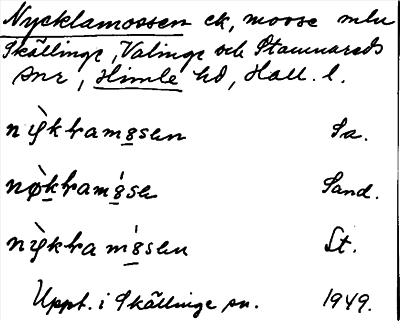 Nycklamossen ck, mosse mlu
Skällinge, Valinge och Stamnareds
snr, Himle hd, Hall. l.
nỳkkamosen Sa.
nøkkamose Sand.
nỳkkamosen St.
Uppt. i Skällinge sn. 1949.